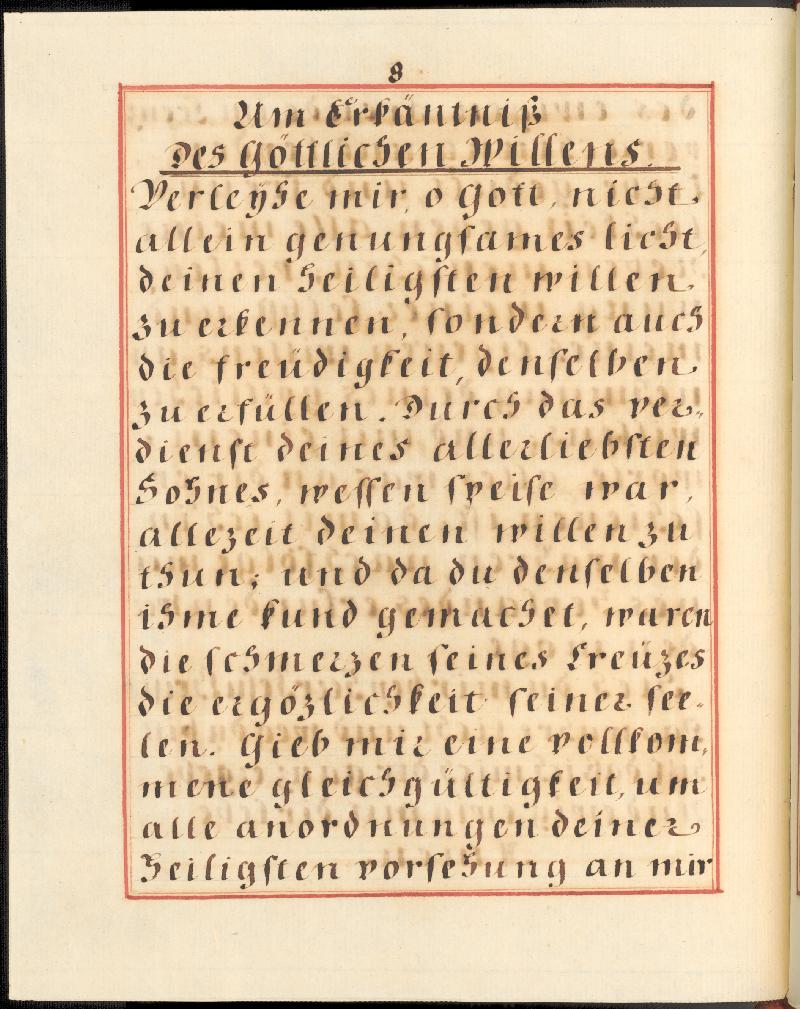 8
Um Erkäntniß
Des Göttlichen Willens.
Verleyhe mir, o Gott, nicht
allein genungsames licht,
deinen heiligsten willen
zu erkennen, sondern auch
die freüdigkeit, denselben
zu erfüllen. Durch das ver-
dienst deines allerliebsten
Sohnes, wessen speise war,
allezeit deinen willen zu
thun; und da du denselben
ihme kund gemachet, waren
die schmerzen seines Creüzes
die ergözlichkeit seiner see-
len. Gieb mir eine vollkom-
mene gleichgültigkeit, um
alle anordnungen deiner
heiligsten vorsehung an mir